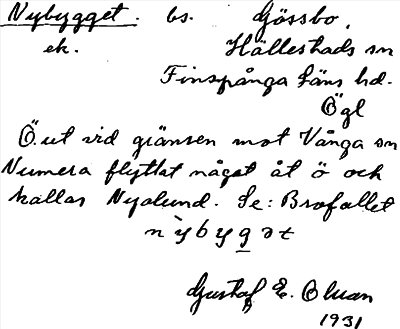 Nybygget. bs. Gössbo,
ek. Hällestads sn
Finspånga läns hd.
Ögl
Ö. ut vid gränsen mot Vånga sn
Numera flyttat något åt ö och
kallas Nyalund. Se: Brofallet
nỳbygət
Gustaf E. Bluan
1931